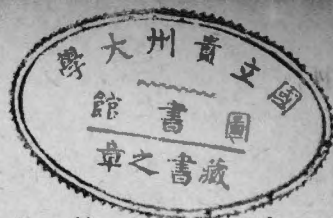 國立貴州大學
圖書館
藏書之章